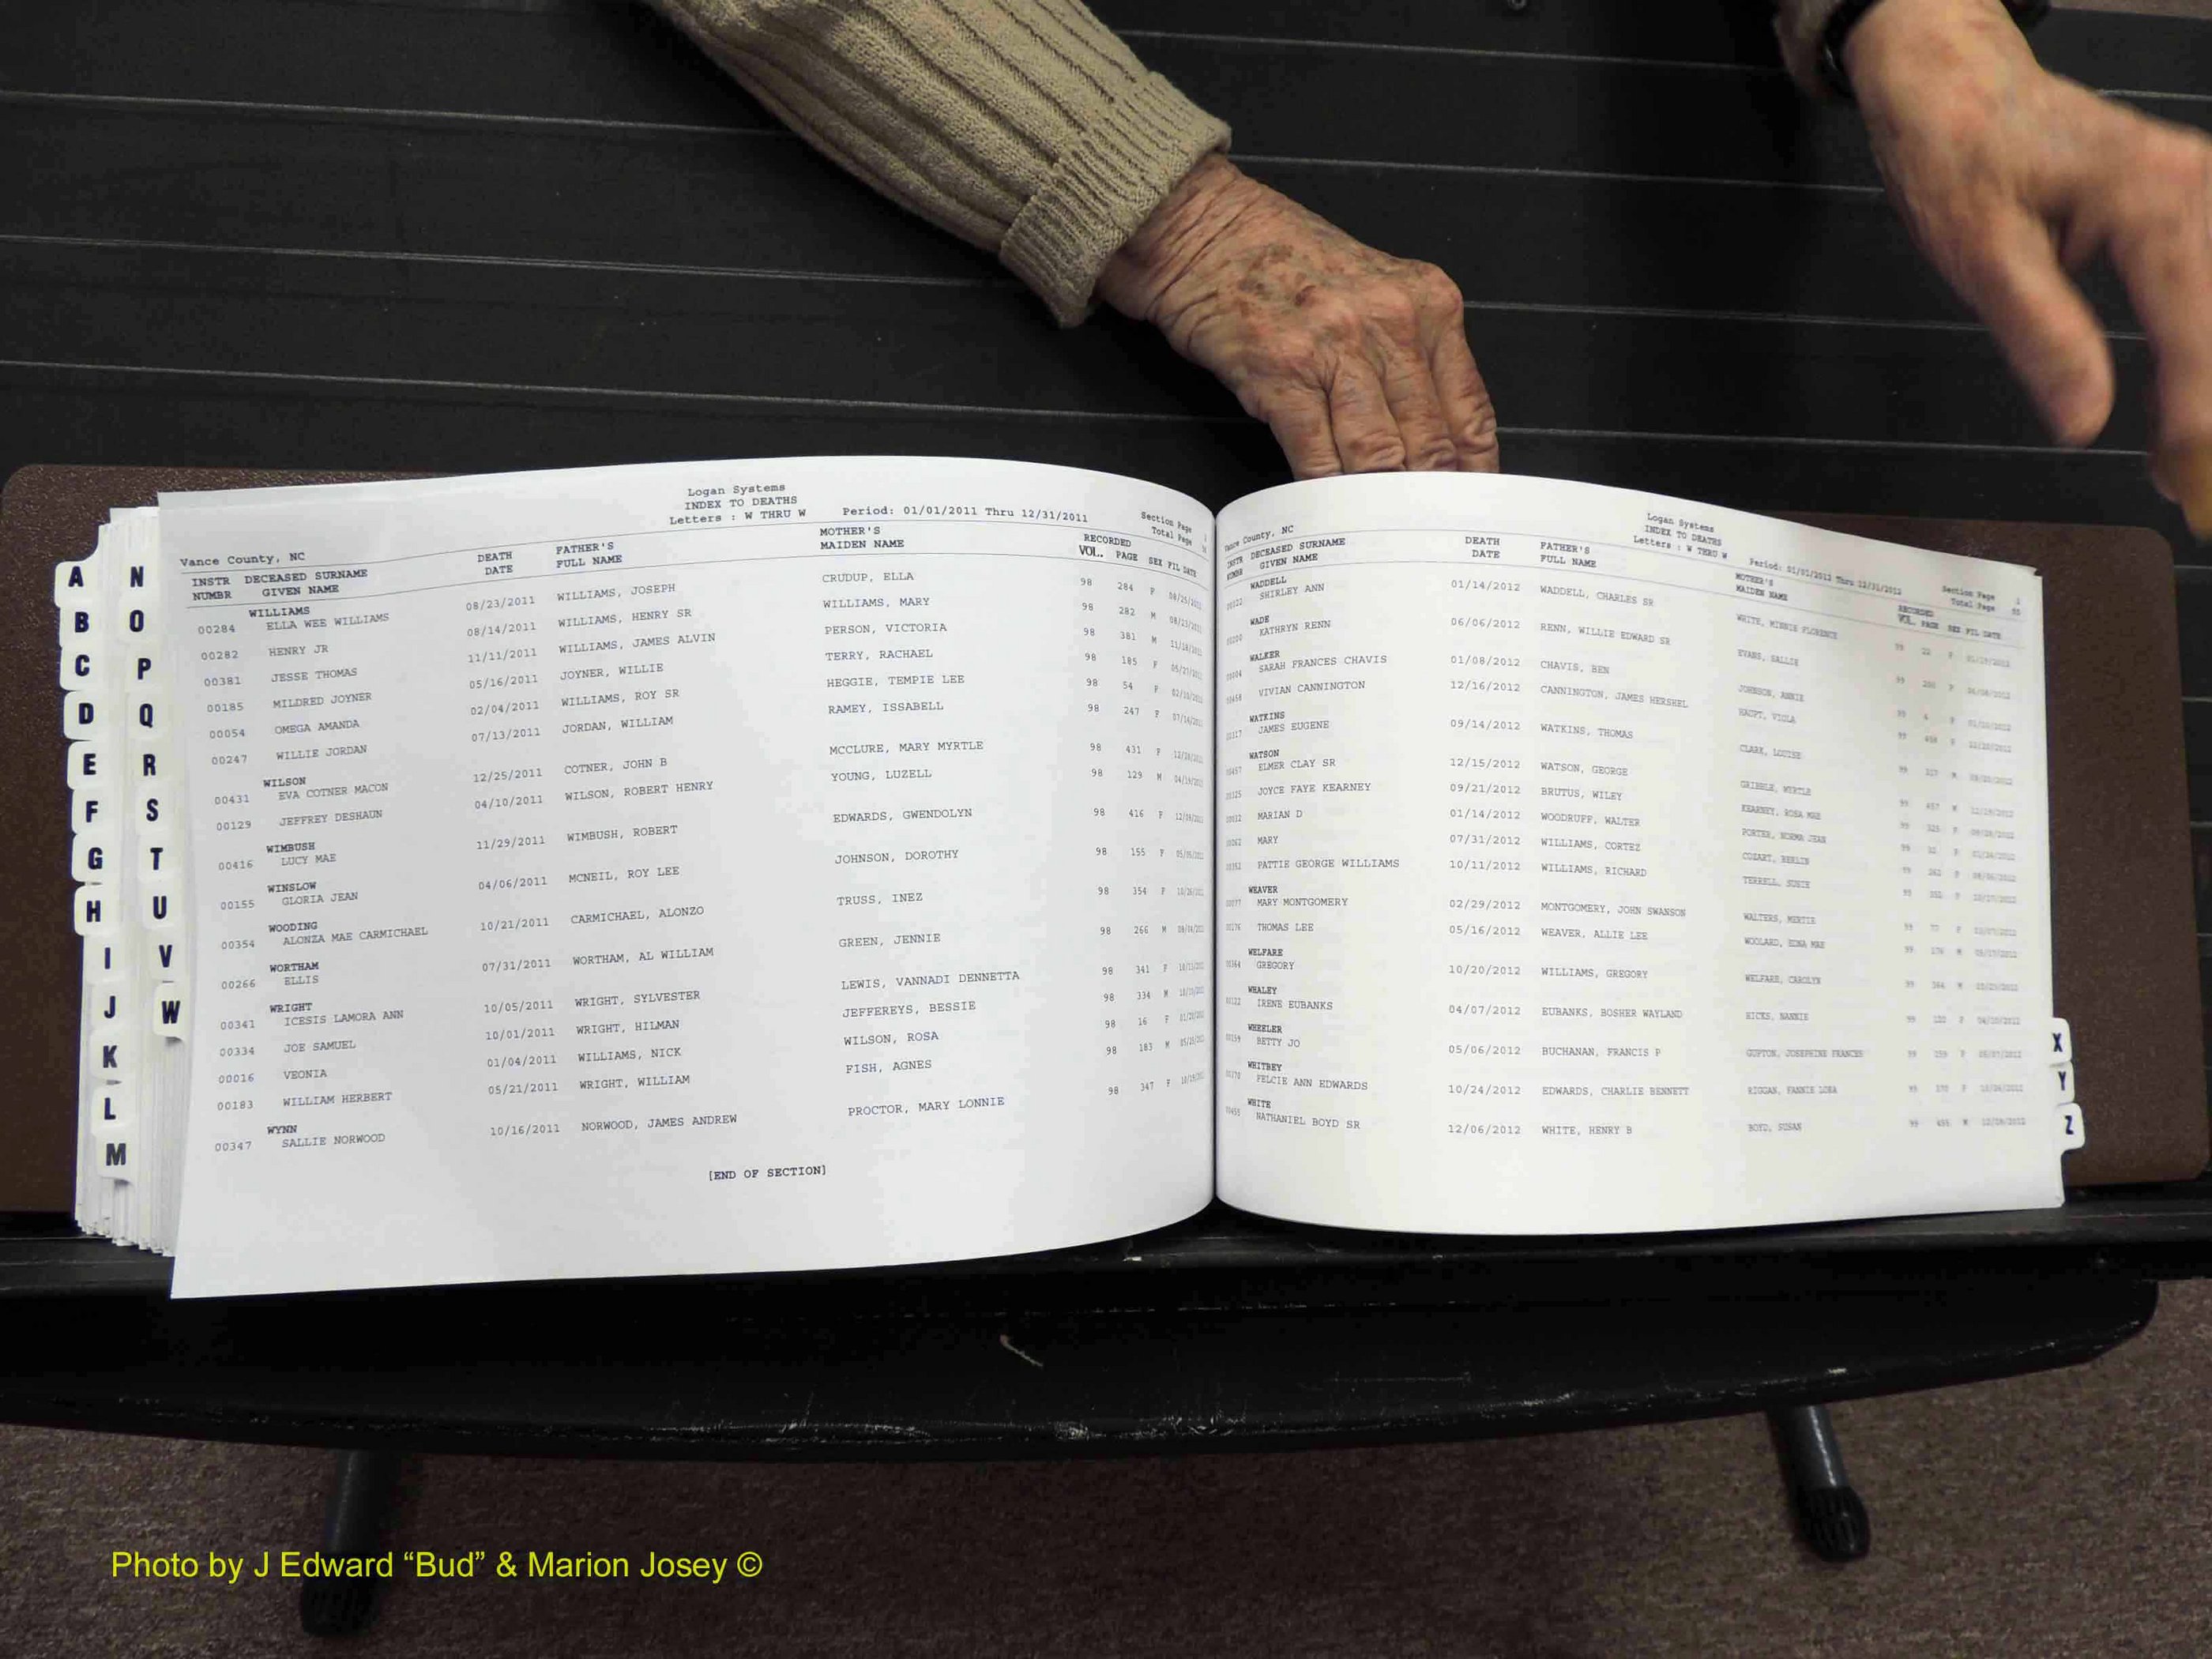 Logan Systems
INDEX TO DEATHS
Letters : W THRU W Period: 01/01/2011 Thru 12/31/2011
Section Page
Total Page
Vance County, NC
INSTR DECEASED SURNAME DEATH FATHER'S MOTHER'S RECORDED
NUMBR GIVEN NAME DATE FULL NAME MAIDEN NAME VOL. PAGE SEX FIL DATE
WILLIAMS
00284 ELLA WEE WILLIAMS 08/23/2011 WILLIAMS, JOSEPH CRUDUP, ELLA 98 284 F 08/25/2011
00282 HENRY JR 08/14/2011 WILLIAMS, HENRY SR WILLIAMS, MARY 98 282 M 08/23/2011
00381 JESSE THOMAS 11/11/2011 WILLIAMS, JAMES ALVIN PERSON, VICTORIA 98 381 M 11/18/2011
00185 MILDRED JOYNER 05/16/2011 JOYNER, WILLIE TERRY, RACHAEL 98 185 F 05/27/2011
00054 OMEGA AMANDA 02/04/2011 WILLIAMS, ROY SR HEGGIE, TEMPIE LEE 98 54 F 02/10/2011
00247 WILLIE JORDAN 07/13/2011 JORDAN, WILLIAM RAMEY, ISSABELL 98 247 F
WILSON
00431 EVA COTNER MACON 12/25/2011 COTNER, JOHN B MCCLURE, MARY MYRTLE 98 431 F
00129 JEFFREY DESHAUN 04/10/2011 WILSON, ROBERT HENRY YOUNG, LUZELL 98 129 M
WIMBUSH
00416 LUCY MAE 11/29/2011 WIMBUSH, ROBERT EDWARDS, GWENDOLYN 98 416 F
WINSLOW
00155 GLORIA JEAN 04/06/2011 MCNEIL, ROY LEE JOHNSON, DOROTHY 98 155 F
WOODING
00354 ALONZA MAE CARMICHAEL 10/21/2011 CARMICHAEL, ALONZO TRUSS, INEZ 98 354 F
WORTHAM
00266 ELLIS 07/31/2011 WORTHAM, AL WILLIAM GREEN, JENNIE 98 266 M
WRIGHT
00341 ICESIS LAMORA ANN 10/05/2011 WRIGHT, SYLVESTER LEWIS, VANNADI DENNETTA 98 341 F
00334 JOE SAMUEL 10/01/2011 WRIGHT, HILMAN JEFFEREYS, BESSIE 98 334 M
00016 VEONIA 01/04/2011 WILLIAMS, NICK WILSON, ROSA 98 16 F
00183 WILLIAM HERBERT 05/21/2011 WRIGHT, WILLIAM FISH, AGNES 98 183 M
WYNN
00347 SALLIE NORWOOD 10/16/2011 NORWOOD, JAMES ANDREW PROCTOR, MARY LONNIE 98 347 F
[END OF SECTION]
A
B
C
D
E
F
G
H
I
J
K
L
M
N
O
P
Q
R
S
T
U
V
W
Logan Systems
INDEX TO DEATHS
Letters : W THRU W Period: 01/01/2012 Thru 12/31/2012
Section Page 1
Total Page
Vance County, NC
INSTR DECEASED SURNAME DEATH FATHER'S MOTHER'S RECORDED
NUMBR GIVEN NAME DATE FULL NAME MAIDEN NAME VOL. PAGE SEX FIL DATE
WADDELL
SHIRLEY ANN 01/14/2012 WADDELL, CHARLES SR WHITE, MINNIE FLORENCE 99 22 F
WADE
KATHRYN RENN 06/06/2012 RENN, WILLIE EDWARD SR EVANS, SALLIE 99 200 F
WALKER
SARAH FRANCES CHAVIS 01/08/2012 CHAVIS, BEN JOHNSON, ANNIE 99 4 F
VIVIAN CANNINGTON 12/16/2012 CANNINGTON, JAMES HERSHEL HAUPT, VIOLA 99 458 F
WATKINS
JAMES EUGENE 09/14/2012 WATKINS, THOMAS CLARK, LOUISE 99 M
WATSON
ELMER CLAY SR 12/15/2012 WATSON, GEORGE GRIBBLE, MYRTLE 99 457 M
JOYCE FAYE KEARNEY 09/21/2012 BRUTUS, WILEY KEARNEY, ROSA MAE 99 325 F
MARIAN D 01/14/2012 WOODRUFF, WALTER PORTER, NORMA JEAN 99 F
MARY 07/31/2012 WILLIAMS, CORTEZ COZART, BERLIN 99 262 F
PATTIE GEORGE WILLIAMS 10/11/2012 WILLIAMS, RICHARD TERRELL, SUSIE 99 F
WEAVER
MARY MONTGOMERY 02/29/2012 MONTGOMERY, JOHN SWANSON WALTERS, MERTIE 99 77 F
THOMAS LEE 05/16/2012 WEAVER, ALLIE LEE WOOLARD, EDNA MAE 99 176 M
WELFARE
GREGORY 10/20/2012 WILLIAMS, GREGORY WELFARE, CAROLYN 99 364 M
WHALEY
IRENE EUBANKS 04/07/2012 EUBANKS, BOSHER WAYLAND HICKS, NANNIE 99 122 F
WHEELER
BETTY JO 05/06/2012 BUCHANAN, FRANCIS P GUPTON, JOSEPHINE FRANCES 99 159 F
WHITBEY
FELCIE ANN EDWARDS 10/24/2012 EDWARDS, CHARLIE BENNETT RIGGAN, FANNIE LOEA 99 370 F
WHITE
NATHANIEL BOYD SR 12/06/2012 WHITE, HENRY B BOYD, SUSAN 99 455 M
X
Y
Z
Photo by J Edward “Bud” & Marion Josey ©